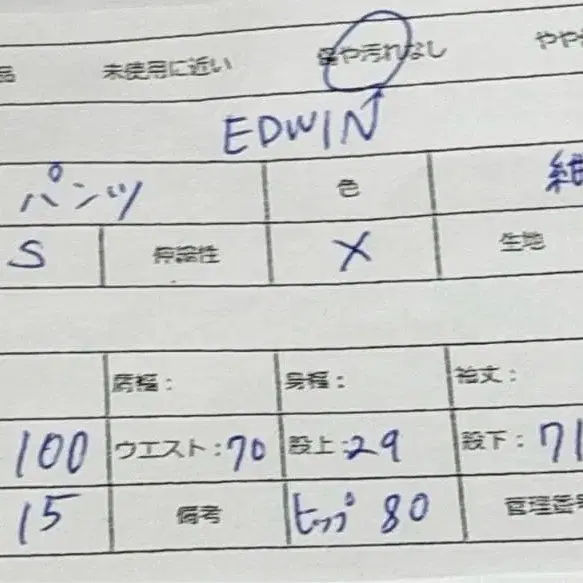 品 未使用に近い 傷や汚れなし やや
EDWIN
パンツ 色 紺
S 伸縮性 × 生地
肩幅： 身幅： 袖丈：
100 ウエスト：70 股上：29 股下：71
15 備考 ヒップ 80 管理番号